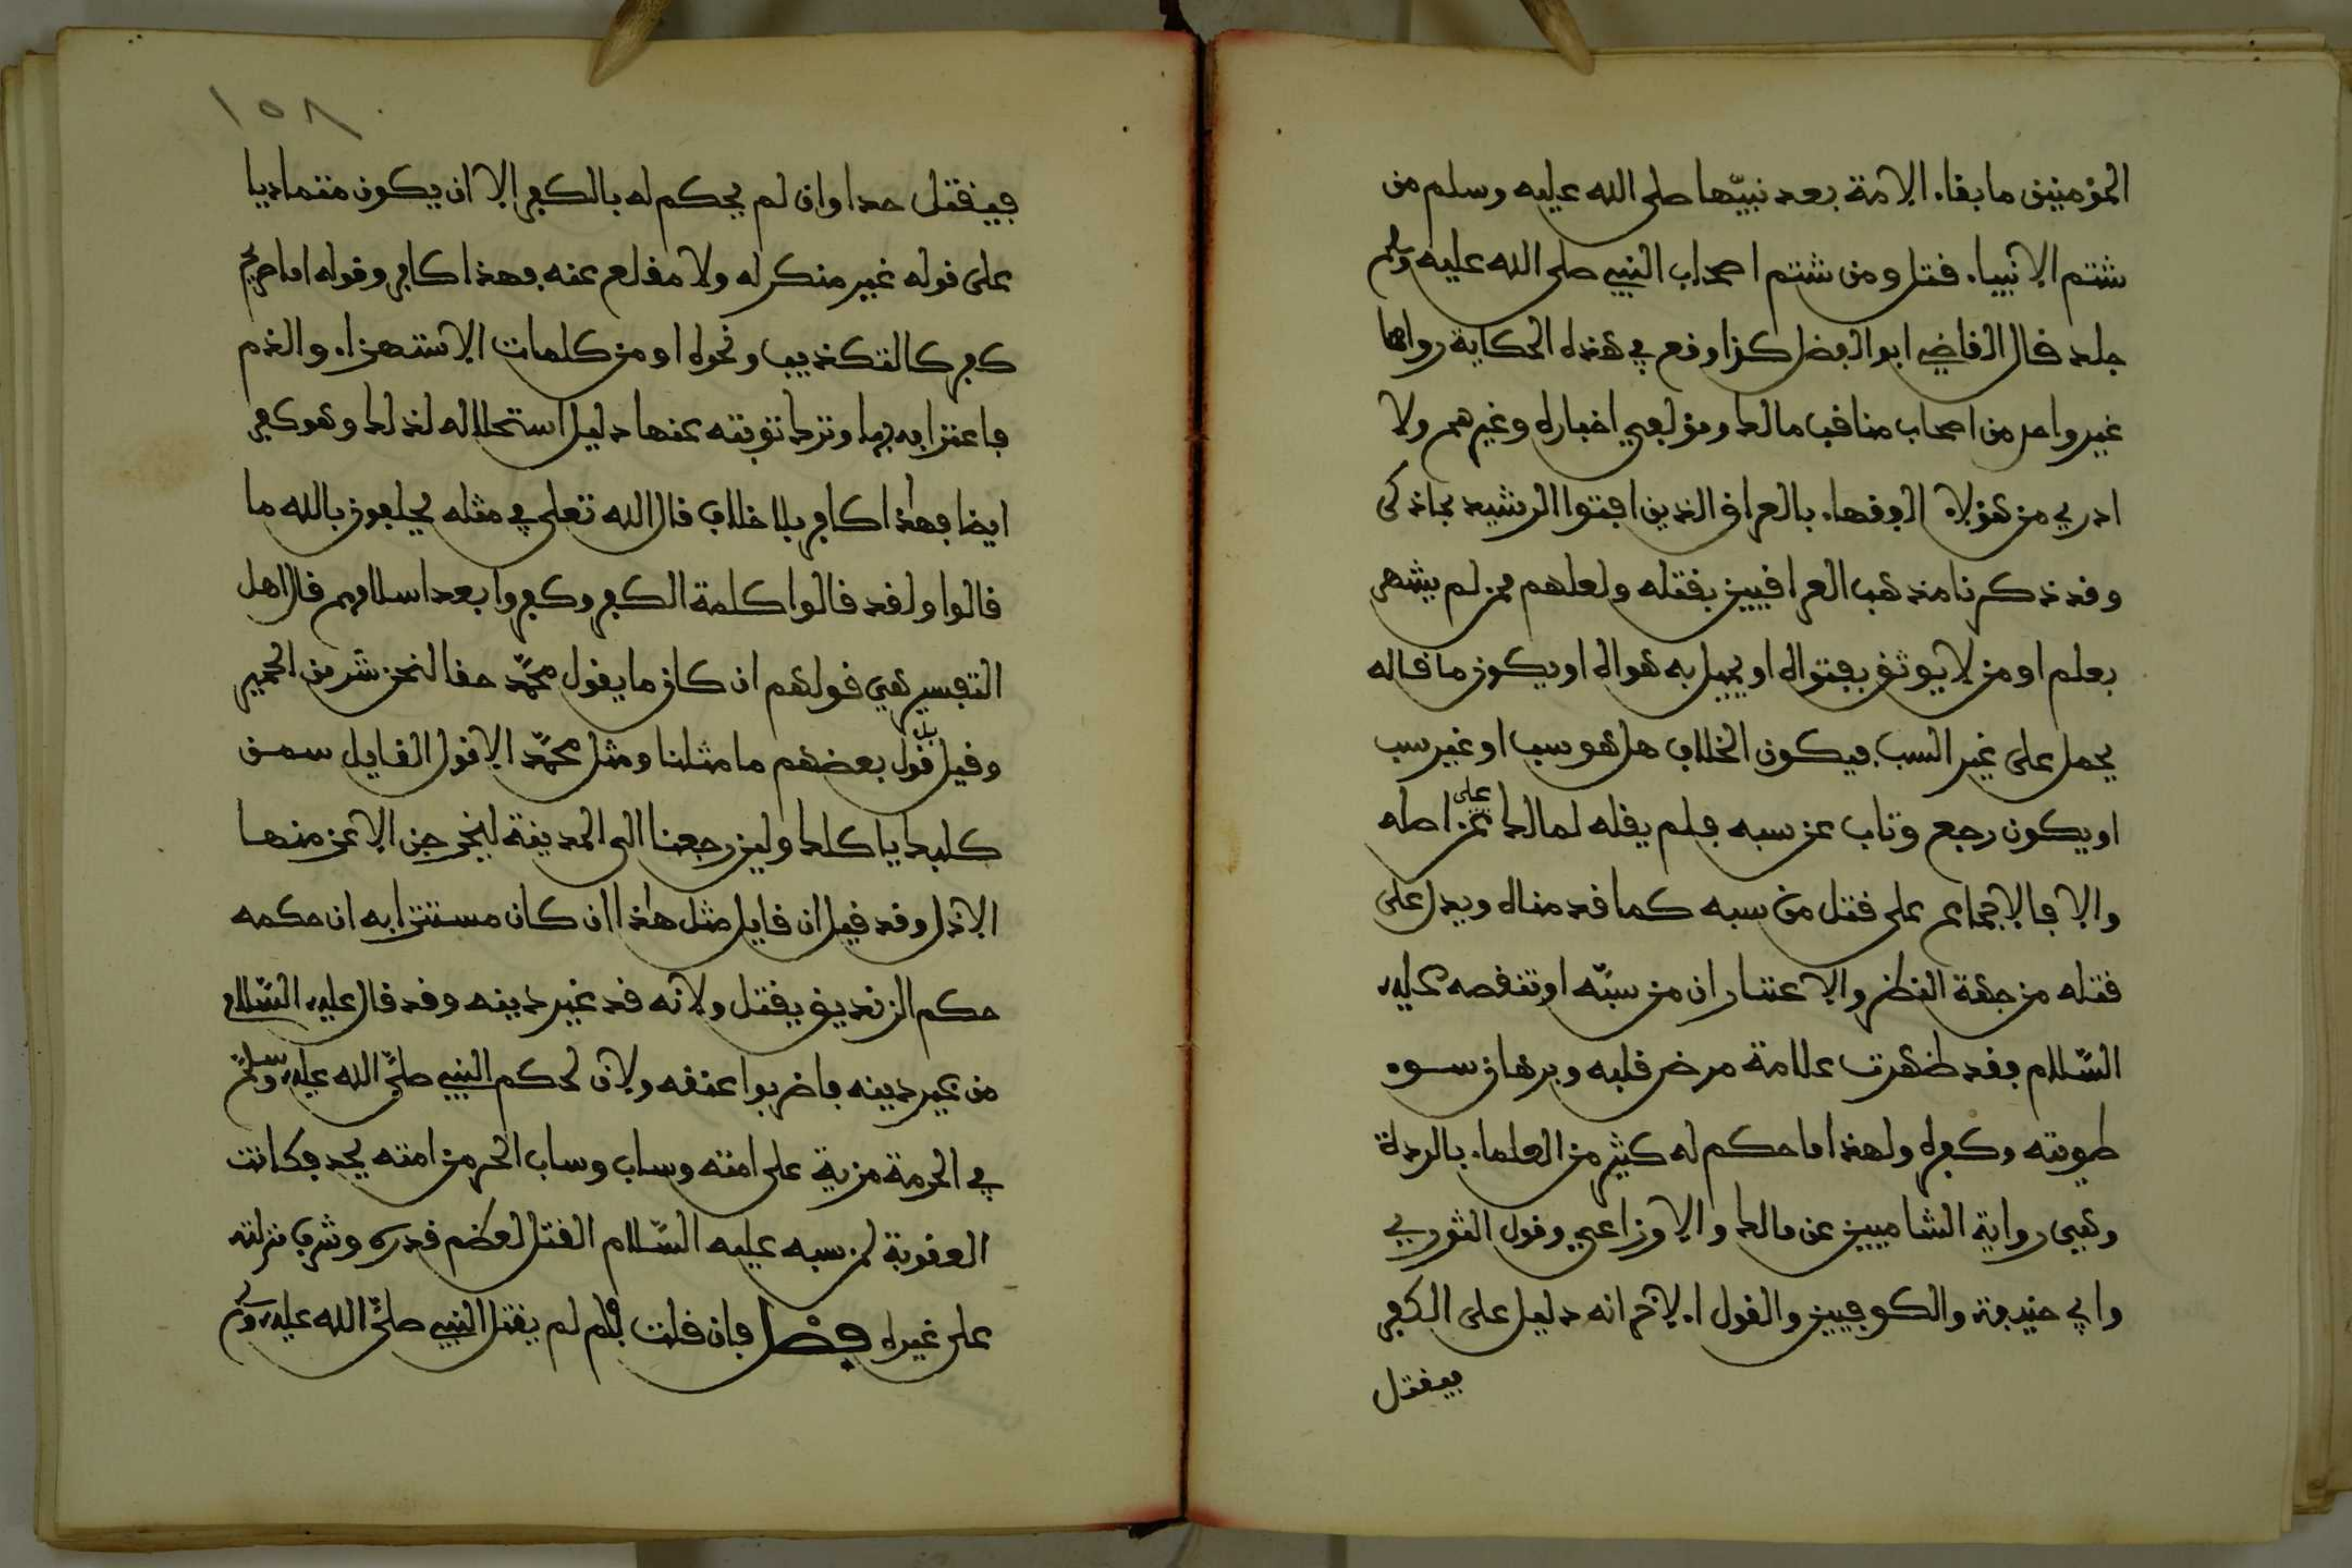 المؤمنين ما بقاء الامة بعد نبيّها صلى الله عليه وسلم من
شتم الانبياء قتل ومن شتم اصحاب النبي صلى الله عليه وسلم
جلد قال القاضي ابو الفضل كذا وقع في هذه الحكاية رواها
غير واحد من اصحاب مناقب مالك ومؤلفي اخباره وغيرهم ولا
ادري من هؤلاء الفقهاء بالعراق الذين افتوا الرشيد بما ذكر
وقد ذكرنا مذهب العراقيين بقتله ولعلهم ممن لم يشهر
بعلم او من لا يوثق بفتواه او يميل به هواه او يكون ما قاله
يحمل على غير السب فيكون الخلاف هل هو سب او غير سب
او يكون رجع وتاب عن سبه فلم يقله لمالك على اصله
والا فالاجماع على قتل من سبه كما قدمناه ويدل على
قتله من جهة النظر والاعتبار ان من سبّه او تنقصه عليه
السّلام فقد ظهرت علامة مرض قلبه وبرهان سوء
طويته وكفره ولهذا ما حكم له كثير من العلماء بالردة
وهي رواية الشاميين عن مالك والاوزاعي وقول الثوري
وابي حنيفة والكوفيين والقول الاخر انه دليل على الكفر
فيقتل
١٥٨
فيقتل حدا وان لم يحكم له بالكفر الا ان يكون متماديا
على قوله غير منكر له ولا مقلع عنه فهذا كافر وقوله اما صريح
كفر كالتكذيب ونحوه او من كلمات الاستهزاء والذم
فاعترافه بها وترك توبته عنها دليل استحلاله لذلك وهو كفر
ايضا فهذا كافر بلا خلاف قال الله تعلى في مثله يحلفون بالله ما
قالوا ولقد قالوا كلمة الكفر وكفروا بعد اسلامهم قال اهل
التفسير هي قولهم ان كان ما يقول محمّد حقا لنحن شر من الحمير
وقيل بل قول بعضهم ما مثلنا ومثل محمّد الا قول القايل سمن
كلبك ياكلك ولين رجعنا الى المدينة ليخرجن الاعز منها
الاذل وقد قيل ان قايل مثل هذا ان كان مستترا به ان حكمه
حكم الزنديق يقتل ولانه قد غير دينه وقد قال عليه السّلام
من غير دينه فاضربوا عنقه ولان لحكم النبي صلّى الله عليه وسلّم
في الحرمة مزية على امته وساب وساب الحر من امته يحد فكانت
العقوبة لمن سبه عليه السّلام القتل لعظم قدره وشرف منزلته
على غيره فصل فان قلت فلم لم يقتل النبي صلّى الله عليه وسلم